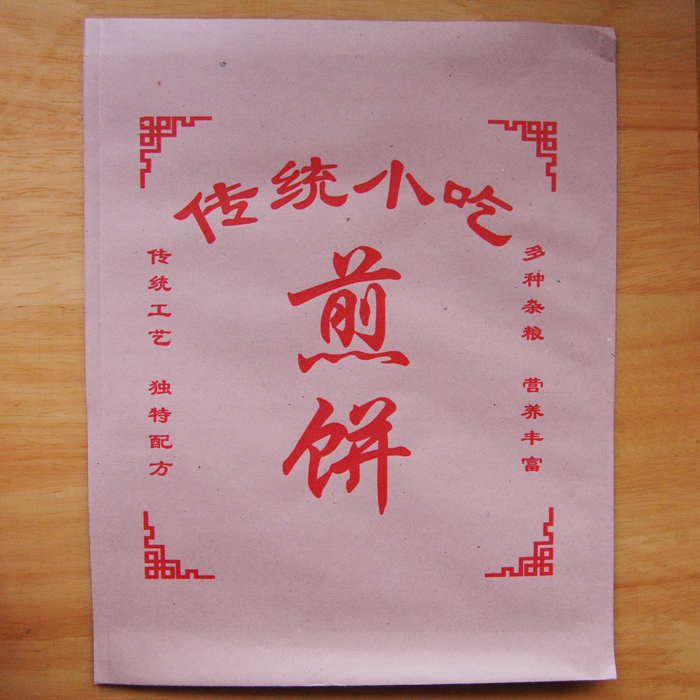 传统小吃
煎饼
多种杂粮 营养丰富
传统工艺 独特配方